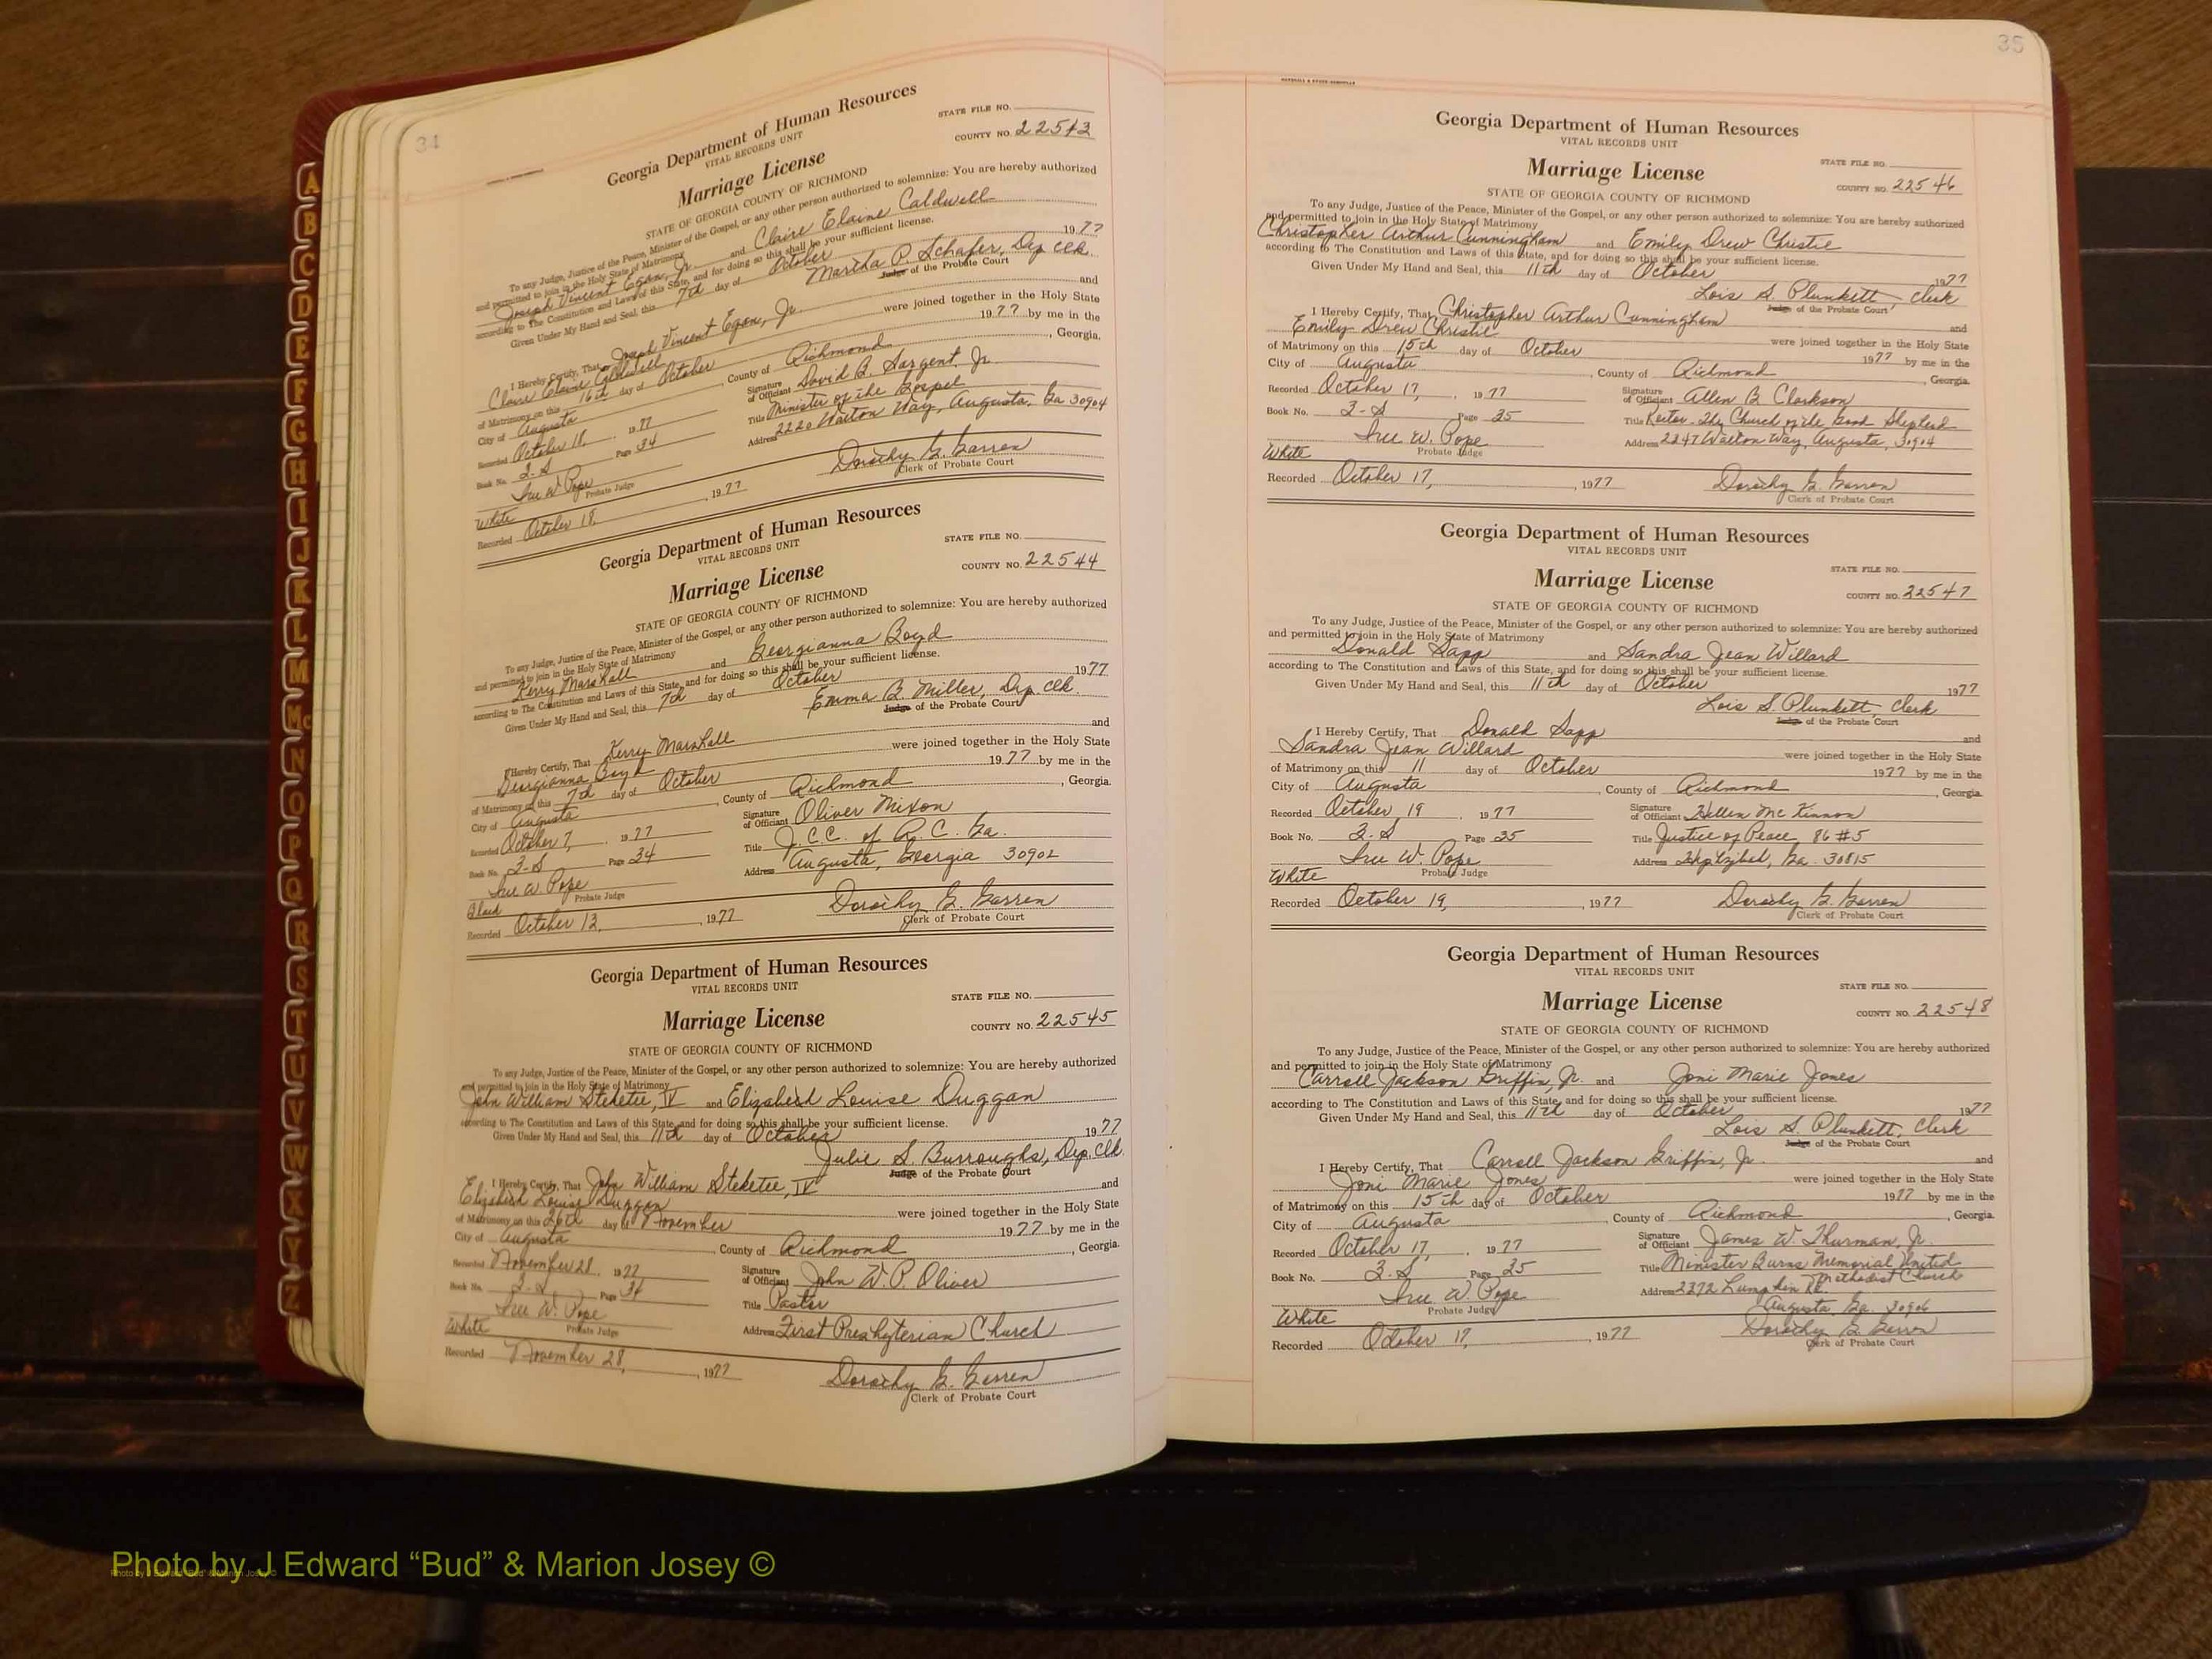 34
Georgia Department of Human Resources
VITAL RECORDS UNIT
STATE FILE NO.
Marriage License
COUNTY NO. 22543
STATE OF GEORGIA COUNTY OF RICHMOND
To any Judge, Justice of the Peace, Minister of the Gospel, or any other person authorized to solemnize: You are hereby authorized
and permitted to join in the Holy State of Matrimony
Joseph Vincent Egan, Jr. and Claire Elaine Caldwell
according to The Constitution and Laws of this State, and for doing so this shall be your sufficient license.
Given Under My Hand and Seal, this 7th day of October 1977
Martha P. Schafer, Dep Clk.
Judge of the Probate Court
I Hereby Certify, That Joseph Vincent Egan, Jr. and
Claire Elaine Caldwell were joined together in the Holy State
of Matrimony on this 16th day of October 1977 by me in the
City of Augusta, County of Richmond, Georgia.
Recorded October 18, 1977
Signature of Officiant David B. Sargent, Jr.
Book No. 3-S Page 34
Title Minister of the Gospel
Address 2220 Walton Way, Augusta, Ga 30904
Ire W. Pope
Probate Judge
White
Recorded October 18, 1977
Dorothy G. Garren
Clerk of Probate Court
Georgia Department of Human Resources
VITAL RECORDS UNIT
STATE FILE NO.
Marriage License
COUNTY NO. 22544
STATE OF GEORGIA COUNTY OF RICHMOND
To any Judge, Justice of the Peace, Minister of the Gospel, or any other person authorized to solemnize: You are hereby authorized
and permitted to join in the Holy State of Matrimony
Kerry Marshall and Georgianna Boyd
according to The Constitution and Laws of this State, and for doing so this shall be your sufficient license.
Given Under My Hand and Seal, this 7th day of October 1977
Emma B. Miller, Dep. Clk.
Judge of the Probate Court
I Hereby Certify, That Kerry Marshall and
Georgianna Boyd were joined together in the Holy State
of Matrimony on this 7th day of October 1977 by me in the
City of Augusta, County of Richmond, Georgia.
Recorded October 7, 1977
Signature of Officiant Oliver Mixon
Book No. 3-S Page 34
Title J.C.C. of R.C. Ga.
Address Augusta, Georgia 30902
Ire W. Pope
Probate Judge
Recorded October 13, 1977
Dorothy G. Garren
Clerk of Probate Court
Georgia Department of Human Resources
VITAL RECORDS UNIT
STATE FILE NO.
Marriage License
COUNTY NO. 22545
STATE OF GEORGIA COUNTY OF RICHMOND
To any Judge, Justice of the Peace, Minister of the Gospel, or any other person authorized to solemnize: You are hereby authorized
and permitted to join in the Holy State of Matrimony
John William Steketee, IV and Elizabeth Louise Duggan
according to The Constitution and Laws of this State, and for doing so this shall be your sufficient license.
Given Under My Hand and Seal, this 11th day of October 1977
Julie S. Burroughs, Dep. Clk.
Judge of the Probate Court
I Hereby Certify, That John William Steketee, IV and
Elizabeth Louise Duggan were joined together in the Holy State
of Matrimony on this 26th day of November 1977 by me in the
City of Augusta, County of Richmond, Georgia.
Recorded November 28, 1977
Signature of Officiant John W. P. Oliver
Book No. 3-S Page 34
Title Pastor
Ire W. Pope
Probate Judge
Address First Presbyterian Church
White
Recorded November 28, 1977
Dorothy G. Garren
Clerk of Probate Court
35
Georgia Department of Human Resources
VITAL RECORDS UNIT
STATE FILE NO.
Marriage License
COUNTY NO. 22546
STATE OF GEORGIA COUNTY OF RICHMOND
To any Judge, Justice of the Peace, Minister of the Gospel, or any other person authorized to solemnize: You are hereby authorized
and permitted to join in the Holy State of Matrimony
Christopher Arthur Cunningham and Emily Drew Christie
according to The Constitution and Laws of this State, and for doing so this shall be your sufficient license.
Given Under My Hand and Seal, this 11th day of October 1977
Lois S. Plunkett, Clerk
Judge of the Probate Court
I Hereby Certify, That Christopher Arthur Cunningham and
Emily Drew Christie were joined together in the Holy State
of Matrimony on this 15th day of October 1977 by me in the
City of Augusta, County of Richmond, Georgia.
Recorded October 17, 1977
Signature of Officiant Allen B Clarkson
Book No. 3-S Page 35
Title Rector - The Church of the Good Shepherd
Ire W. Pope
Probate Judge
Address 2247 Walton Way, Augusta, 30904
White
Recorded October 17, 1977
Dorothy G. Garren
Clerk of Probate Court
Georgia Department of Human Resources
VITAL RECORDS UNIT
STATE FILE NO.
Marriage License
COUNTY NO. 22547
STATE OF GEORGIA COUNTY OF RICHMOND
To any Judge, Justice of the Peace, Minister of the Gospel, or any other person authorized to solemnize: You are hereby authorized
and permitted to join in the Holy State of Matrimony
Donald Sapp and Sandra Jean Willard
according to The Constitution and Laws of this State, and for doing so this shall be your sufficient license.
Given Under My Hand and Seal, this 11th day of October 1977
Lois S. Plunkett, Clerk
Judge of the Probate Court
I Hereby Certify, That Donald Sapp and
Sandra Jean Willard were joined together in the Holy State
of Matrimony on this 11 day of October 1977 by me in the
City of Augusta, County of Richmond, Georgia.
Recorded October 19, 1977
Signature of Officiant Hellen Mc Kinnon
Book No. 3-S Page 35
Title Justice of Peace, 86 #5
Ire W. Pope
Probate Judge
Address Ga. 30815
White
Recorded October 19, 1977
Dorothy G. Garren
Clerk of Probate Court
Georgia Department of Human Resources
VITAL RECORDS UNIT
STATE FILE NO.
Marriage License
COUNTY NO. 22548
STATE OF GEORGIA COUNTY OF RICHMOND
To any Judge, Justice of the Peace, Minister of the Gospel, or any other person authorized to solemnize: You are hereby authorized
and permitted to join in the Holy State of Matrimony
Carroll Jackson Griffin, Jr. and Joni Marie Jones
according to The Constitution and Laws of this State, and for doing so this shall be your sufficient license.
Given Under My Hand and Seal, this 11th day of October 1977
Lois S. Plunkett, Clerk
Judge of the Probate Court
I Hereby Certify, That Carroll Jackson Griffin, Jr. and
Joni Marie Jones were joined together in the Holy State
of Matrimony on this 15th day of October 1977 by me in the
City of Augusta, County of Richmond, Georgia.
Recorded October 17, 1977
Signature of Officiant James W. Thurman, Jr.
Book No. 3-S Page 35
Title Minister Burns Memorial United
Methodist Church
Address 2372 Lumpkin Rd.
Augusta Ga. 30906
Ire W. Pope
Probate Judge
White
Recorded October 17, 1977
Dorothy G. Garren
Clerk of Probate Court
A
B
C
D
E
F
G
H
I
J
K
L
M
Mc
N
O
P
Q
R
S
T
U
V
W
X
Y
Z
Photo by J Edward “Bud” & Marion Josey ©
Photo by J Edward “Bud” & Marion Josey ©